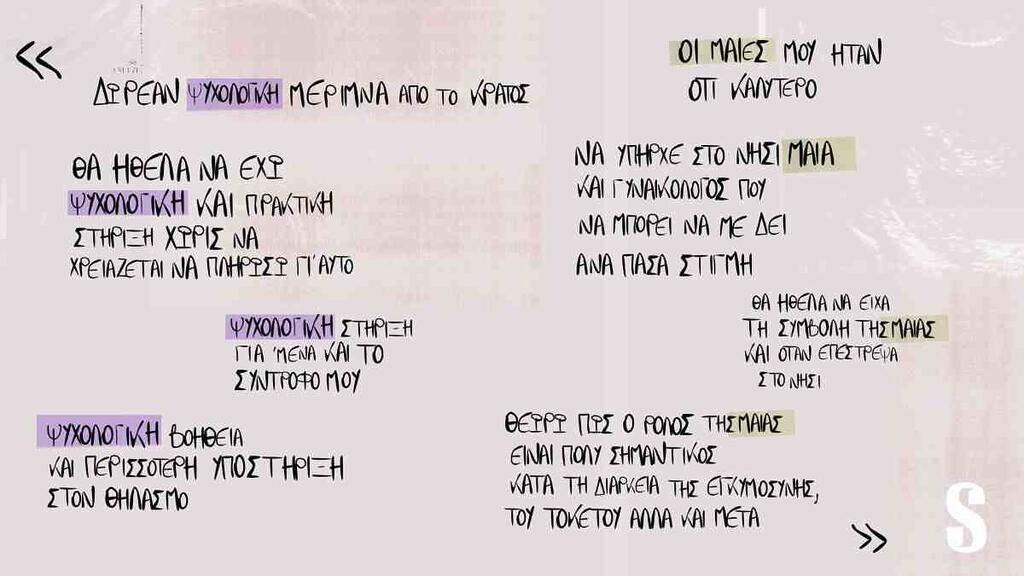 «
ΔΩΡΕΑΝ ΨΥΧΟΛΟΓΙΚΗ ΜΕΡΙΜΝΑ ΑΠΟ ΤΟ ΚΡΑΤΟΣ
ΘΑ ΗΘΕΛΑ ΝΑ ΕΧΩ
ΨΥΧΟΛΟΓΙΚΗ ΚΑΙ ΠΡΑΚΤΙΚΗ
ΣΤΗΡΙΞΗ ΧΩΡΙΣ ΝΑ
ΧΡΕΙΑΖΕΤΑΙ ΝΑ ΠΛΗΡΩΣΩ ΓΙ'ΑΥΤΟ
ΨΥΧΟΛΟΓΙΚΗ ΣΤΗΡΙΞΗ
ΓΙΑ 'ΜΕΝΑ ΚΑΙ ΤΟ
ΣΥΝΤΡΟΦΟ ΜΟΥ
ΨΥΧΟΛΟΓΙΚΗ ΒΟΗΘΕΙΑ
ΚΑΙ ΠΕΡΙΣΣΟΤΕΡΗ ΥΠΟΣΤΗΡΙΞΗ
ΣΤΟΝ ΘΗΛΑΣΜΟ
ΟΙ ΜΑΙΕΣ ΜΟΥ ΗΤΑΝ
ΟΤΙ ΚΑΛΥΤΕΡΟ
ΝΑ ΥΠΗΡΧΕ ΣΤΟ ΝΗΣΙ ΜΑΙΑ
ΚΑΙ ΓΥΝΑΙΚΟΛΟΓΟΣ ΠΟΥ
ΝΑ ΜΠΟΡΕΙ ΝΑ ΜΕ ΔΕΙ
ΑΝΑ ΠΑΣΑ ΣΤΙΓΜΗ
ΘΑ ΗΘΕΛΑ ΝΑ ΕΙΧΑ
ΤΗ ΣΥΜΒΟΛΗ ΤΗΣ ΜΑΙΑΣ
ΚΑΙ ΟΤΑΝ ΕΠΕΣΤΡΕΨΑ
ΣΤΟ ΝΗΣΙ
ΘΕΩΡΩ ΠΩΣ Ο ΡΟΛΟΣ ΤΗΣ ΜΑΙΑΣ
ΕΙΝΑΙ ΠΟΛΥ ΣΗΜΑΝΤΙΚΟΣ
ΚΑΤΑ ΤΗ ΔΙΑΡΚΕΙΑ ΤΗΣ ΕΓΚΥΜΟΣΥΝΗΣ,
ΤΟΥ ΤΟΚΕΤΟΥ ΑΛΛΑ ΚΑΙ ΜΕΤΑ
»
S